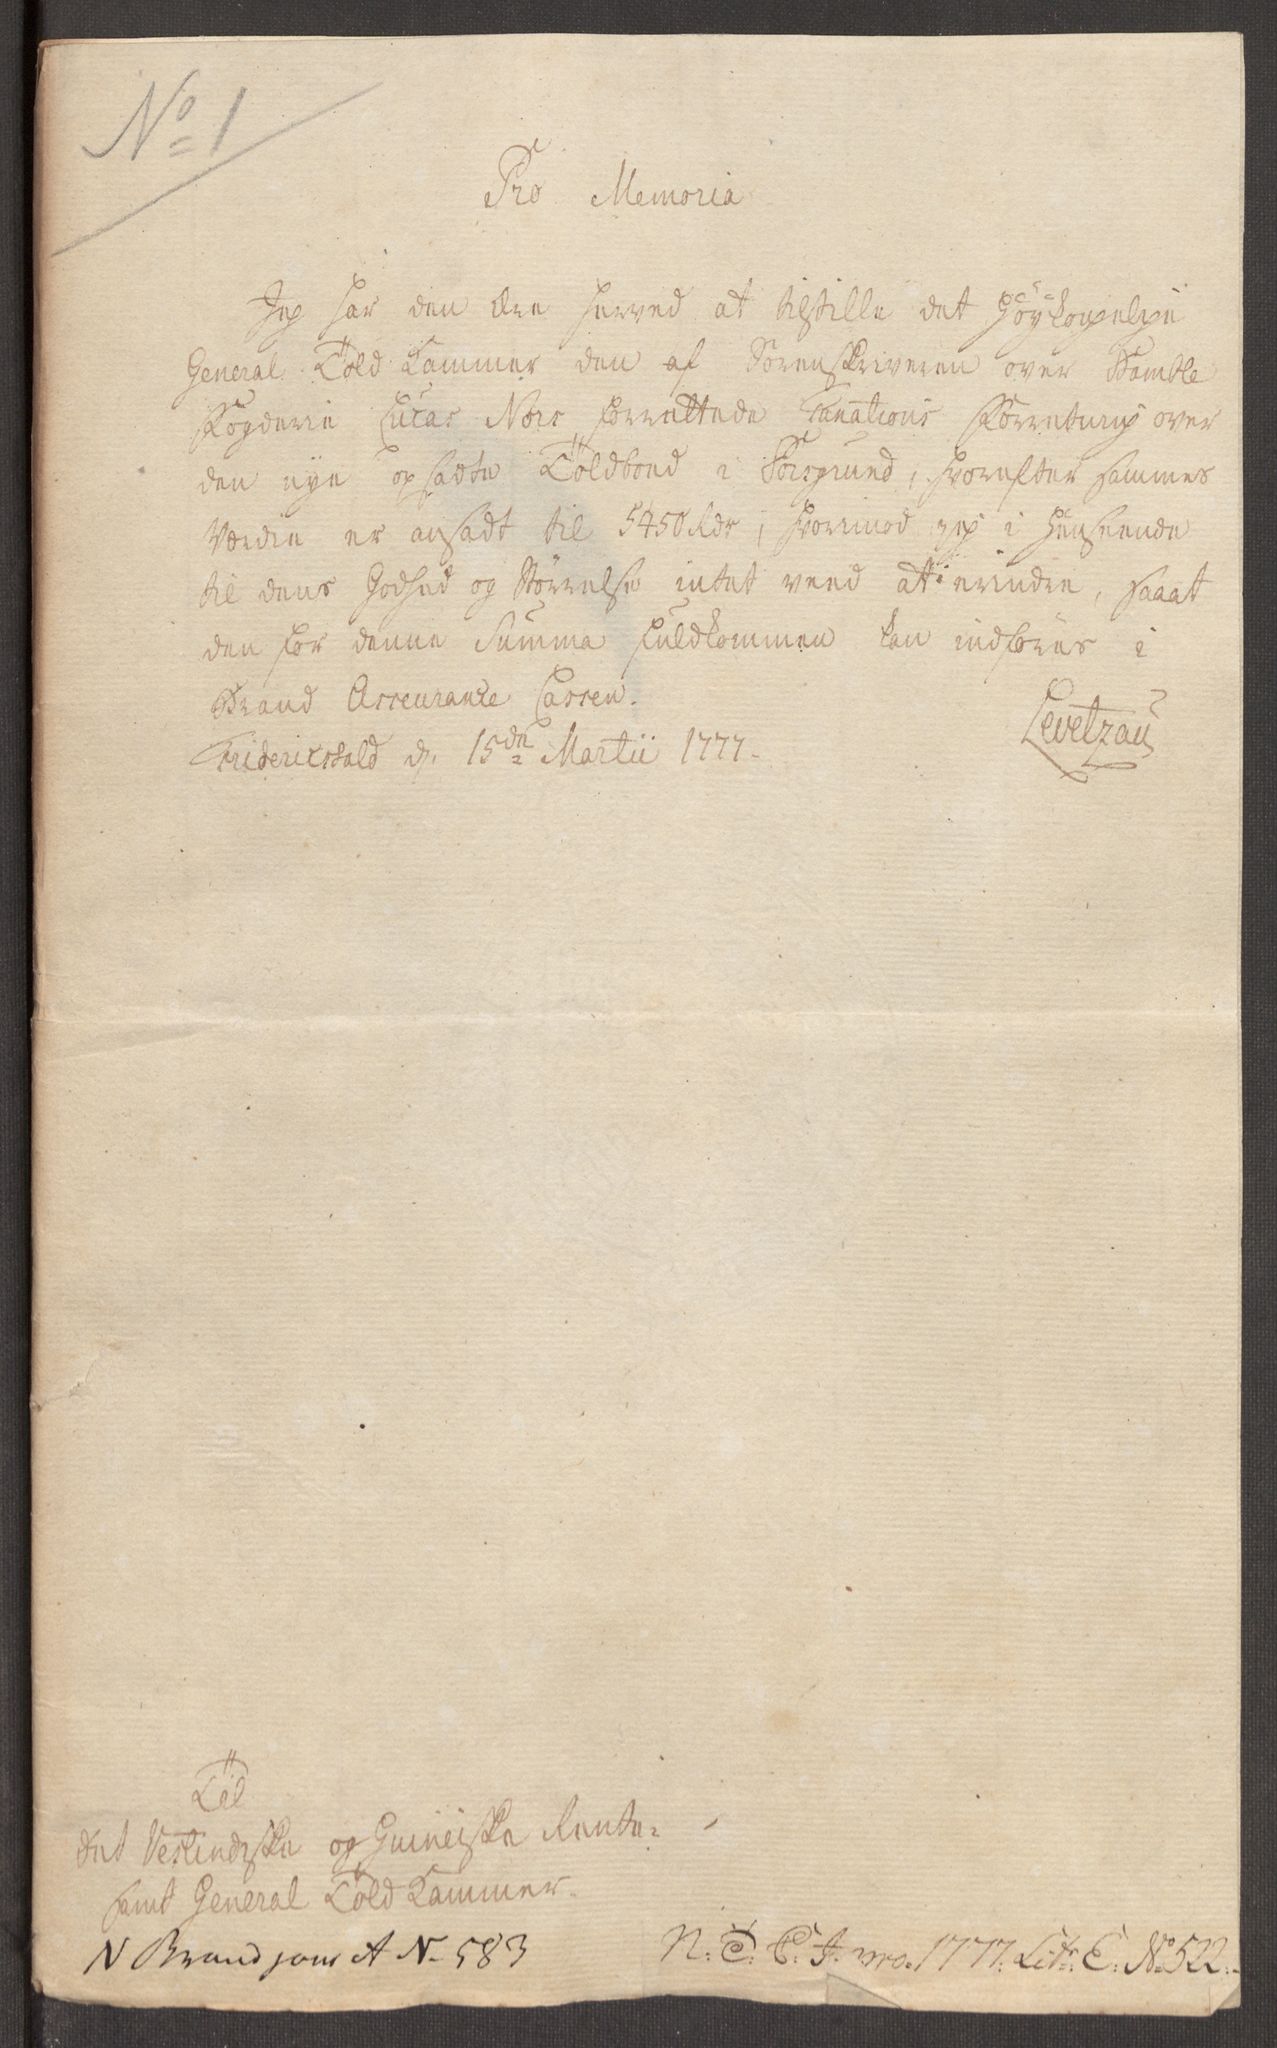 No 1
Pro Memoria
Jeg har den Ære herved at tilstille det Höykongelige
General Told Kammer den af Sorenskriveren over Bamble
Fogderie Lucas Nors forrettede Taxations Forretning over
den nye opsadte Toldboed i Porsgrund, hvorefter sammes
Værdie er ansadt til 5450 Rdr; hvorimod jeg i Henseende
til dens Godhed og Störrelse intet veed at erindre, saaat
den for denne Summa fuldkommen kan indföres i
Brand Assurance Cassen.
Friderichshald d. 15de Martii 1777.
Levetzau
Til
det Vestindiske og Guineiske Rente-
samt General Told Kammer.
N Brand jour A No 583
N. T. C. J. pro. 1777. Litr. E. No 522.